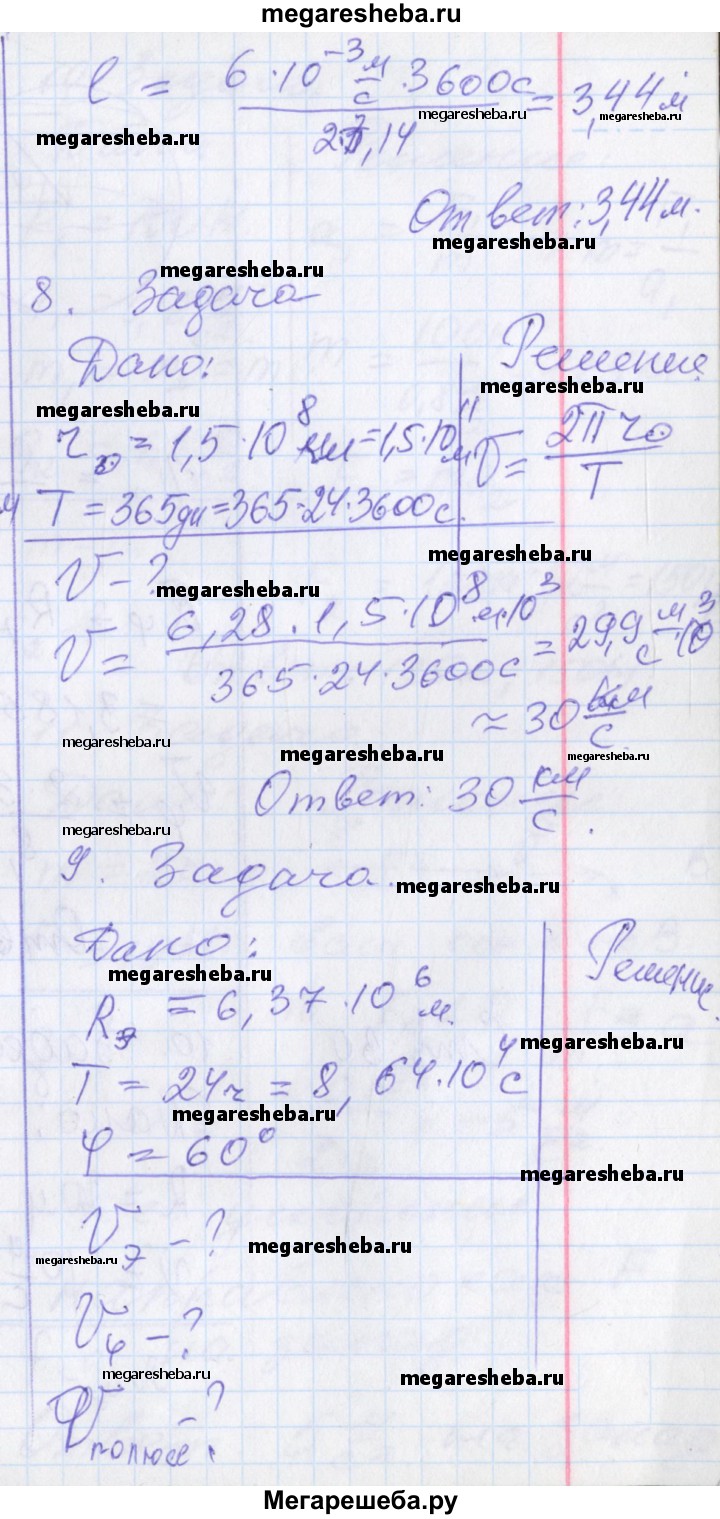 megaresheba.ru
l = 6·10⁻³ м/с · 3600с / 2·3,14 = 3,44 м
megaresheba.ru
megaresheba.ru
Ответ: 3,44 м.
megaresheba.ru
megaresheba.ru
8. Задача
Дано: Решение
megaresheba.ru
megaresheba.ru
= 1,5·10⁸ км = 1,5·10¹¹ м
V = 2π r₀ / T
T = 365дн = 365·24·3600с.
megaresheba.ru
V - ?
megaresheba.ru
V = 6,28·1,5·10⁸ м·10³ / 365·24·3600с = 29,9 м/с·10³
≈ 30 км/с.
megaresheba.ru
megaresheba.ru
megaresheba.ru
Ответ: 30 км/с.
megaresheba.ru
9. Задача.
megaresheba.ru
Дано: Решение.
megaresheba.ru
R₃ = 6,37·10⁶ м.
megaresheba.ru
T = 24ч = 8,64·10⁴ с
megaresheba.ru
φ = 60°
megaresheba.ru
V - ?
megaresheba.ru
megaresheba.ru
Vφ - ?
megaresheba.ru
megaresheba.ru
Vполюсе - ?
Мегарешеба.ру